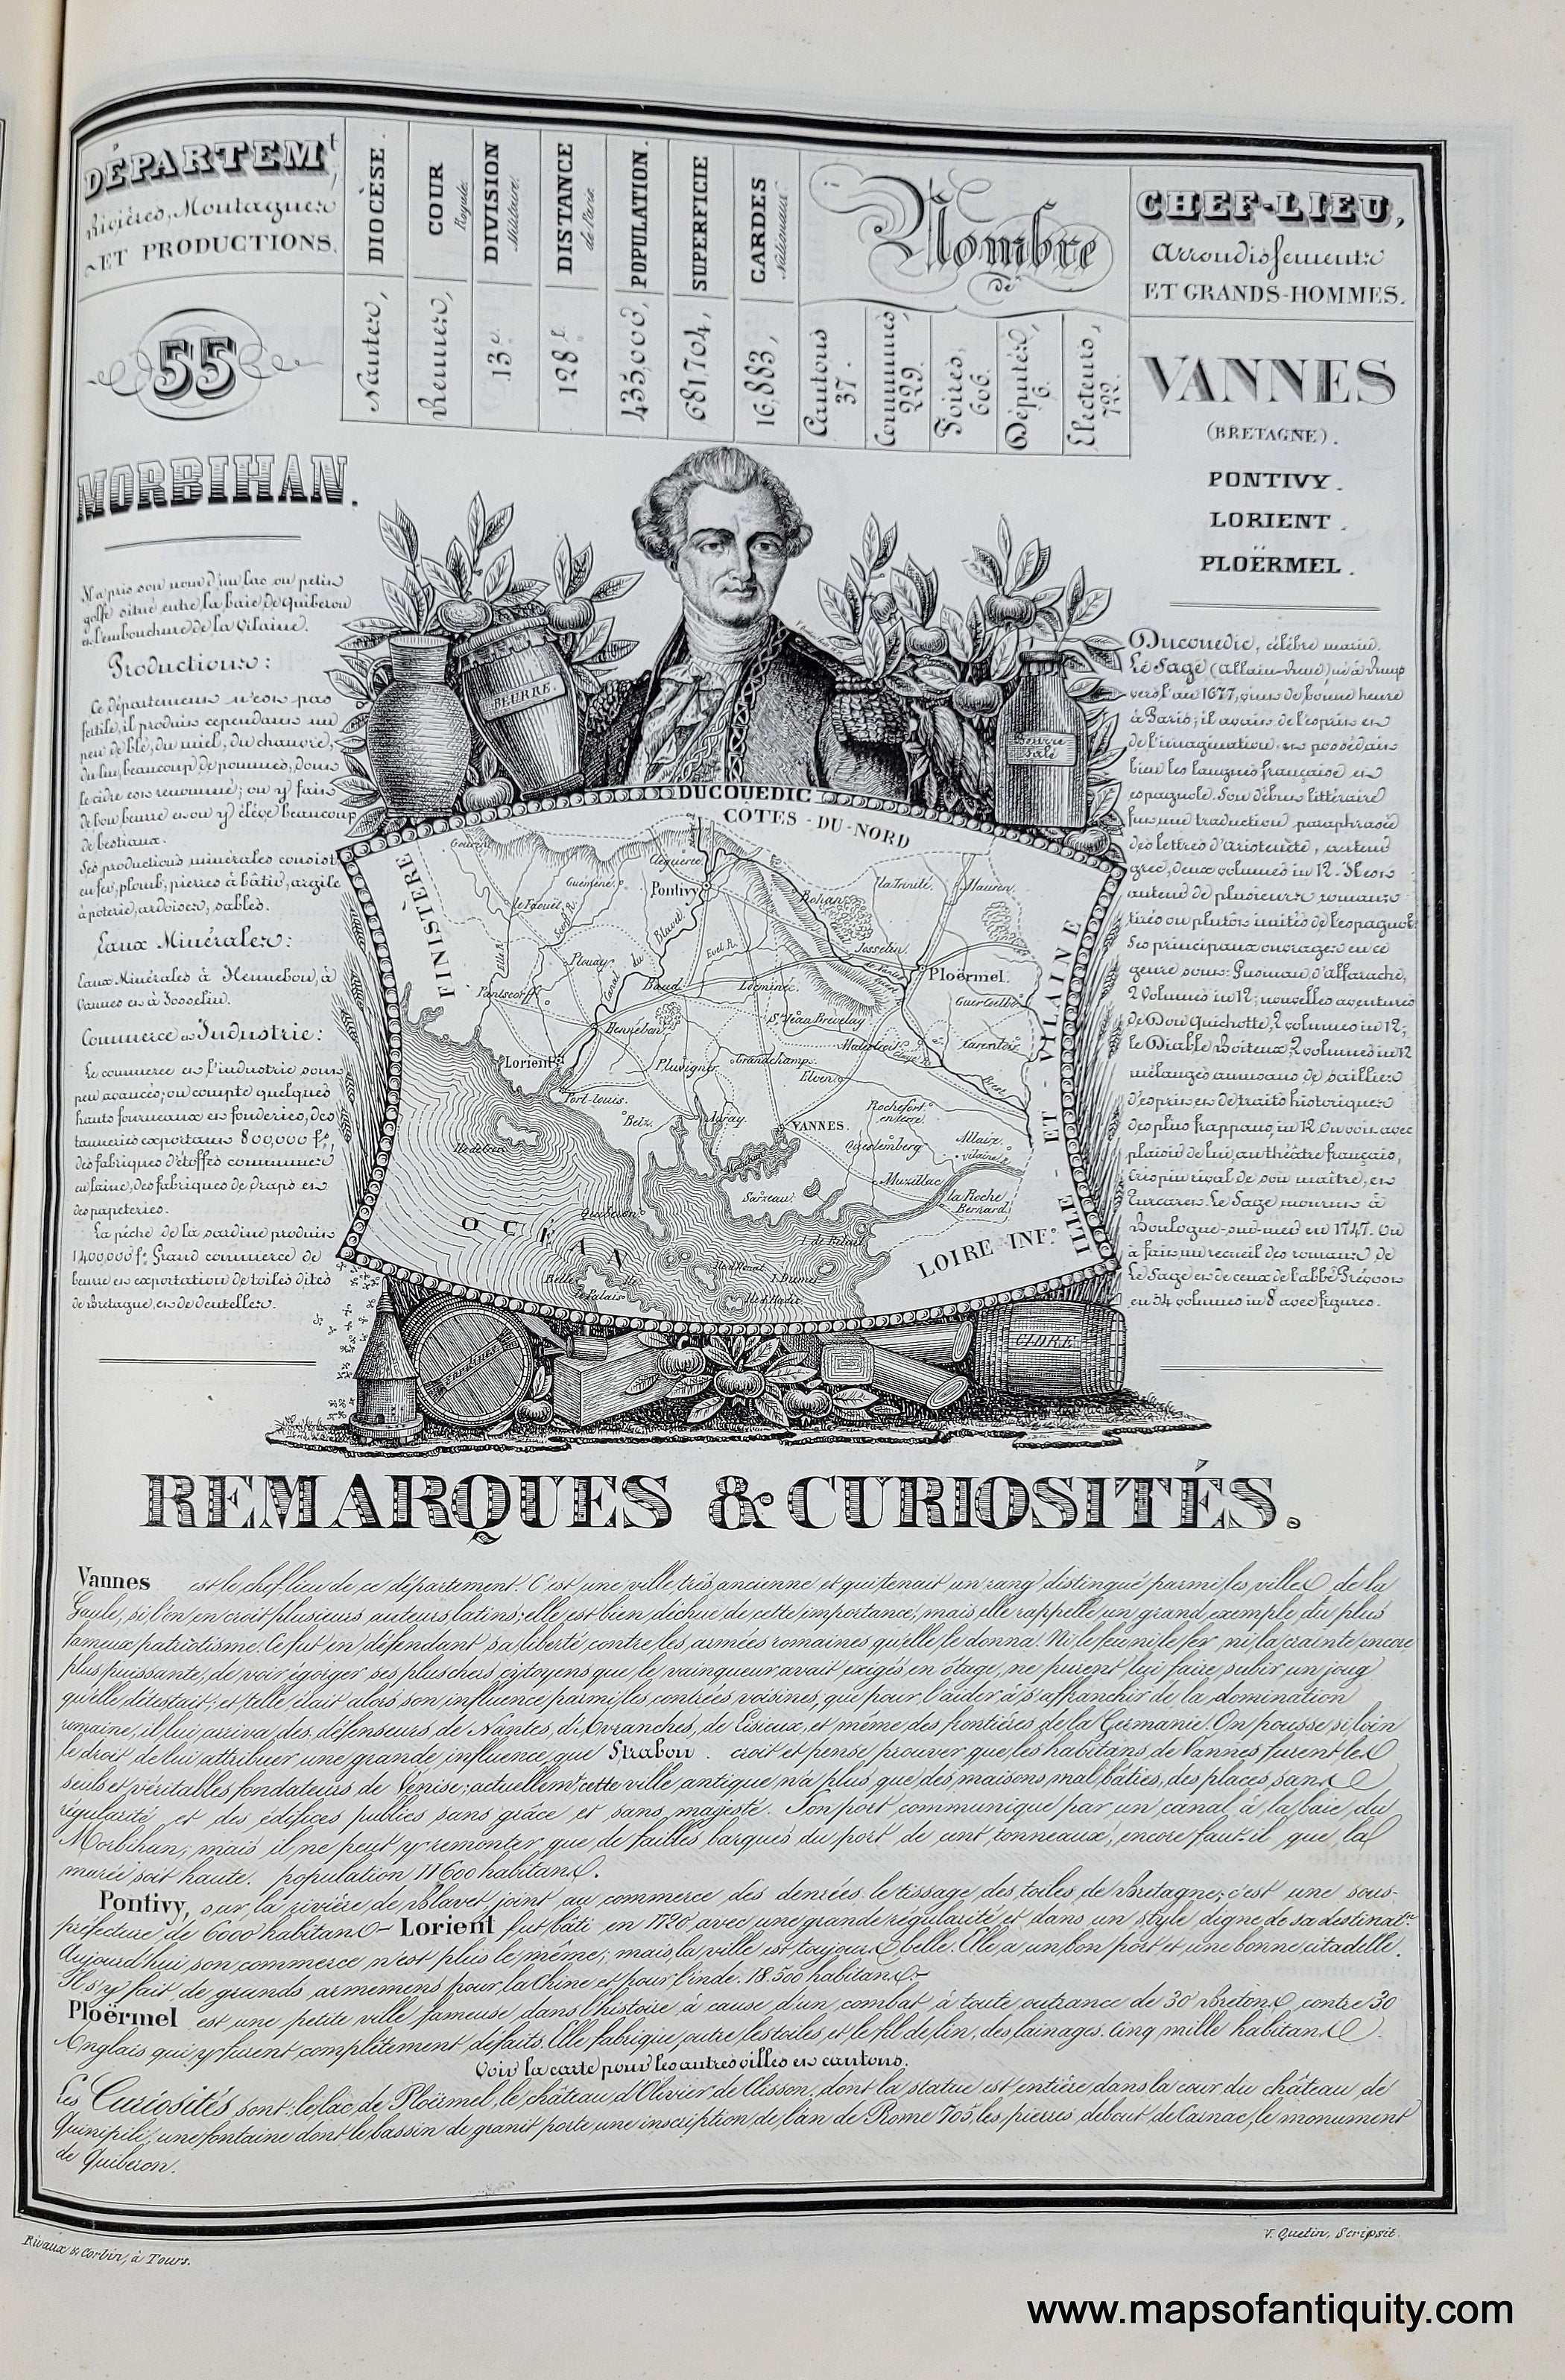 DÉPARTEMt
Rivières, Montagnes
ET PRODUCTIONS.
DIOCÈSE.
COUR Royale.
DIVISION Militaire.
DISTANCE de Paris.
POPULATION.
SUPERFICIE
GARDES Nationaux.
Nombre
de
CHEF-LIEU,
Arrondissements
ET GRANDS-HOMMES.
55
Nantes,
Rennes,
13e
128 l.
435,000,
681704,
16,883,
Cantons 37.
Communes 229.
Foires, 606.
Députés, 6.
Electeurs, 722.
VANNES
(BRETAGNE).
PONTIVY.
LORIENT.
PLOËRMEL.
MORBIHAN.
N'a pris son nom d'un lac ou petit
golfe situé entre la baie de Quiberon
et l'embouchure de la Vilaine.
Productions:
Ce département n'est pas
fertile, il produit cependant un
peu de blé, du miel, du chanvre,
du lin, beaucoup de pommes, dont
le cidre est renommé; on y fait
de bon beurre et on y élève beaucoup
de bestiaux.
Ses productions minérales consist.
en fer, plomb, pierres à bâtir, argile
à poterie, ardoises, sables.
Eaux Minérales:
Eaux Minérales à Hennebon, à
Vannes et à Josselin.
Commerce et Industrie:
Le commerce et l'industrie sont
peu avancés; on compte quelques
hauts fourneaux et fonderies, des
tanneries exportant 800,000 f.,
des fabriques d'étoffes communes
en laine, des fabriques de draps et
des papeteries.
La pêche de la sardine produit
1400,000 f. Grand commerce de
beurre et exportation de toiles dites
de Bretagne, et de dentelles.
Ducouedic, célèbre marin.
Le Sage (Allain-René) né à Rhuys
vers l'an 1677, vint de bonne heure
à Paris; il avait de l'esprit et
de l'imagination, et possédait
bien les langues française et
espagnole. Son début littéraire
fut une traduction paraphrasée
des lettres d'Aristenète, auteur
grec, deux volumes in 12. Il est
auteur de plusieurs romans
tirés ou plutôt imités de l'espagnol.
Ses principaux ouvrages en ce
genre sont: Gusman d'Alfarache,
2 volumes in 12; nouvelles aventures
de Don Quichotte, 2 volumes in 12;
le Diable Boiteux, 2 volumes in 12
mélanges amusans de saillies
d'esprit et de traits historiques
des plus frappans, in 12. On voit avec
plaisir de lui, au théâtre français,
Crispin rival de son maître, et
Turcaret. Le Sage mourut à
Boulogne-sur-mer en 1747. On
a fait un recueil des romans de
Le Sage et de ceux de l'abbé Prévost
en 54 volumes in 8 avec figures.
BEURRE.
Beurre Salé
DUCOUEDIC
CÔTES-DU-NORD
FINISTÈRE
ILLE-ET-VILAINE
LOIRE INFe.
OCÉAN
Gourin
Cléguérec
Guéméné.
Pontivy
la Trinité.
Mauron.
le Faouët
Rohan
Josselin
Ploërmel.
Plouay.
Pontscorff.
Canal du Blavet
Evel R.
Baud.
Locminé.
Guer
St Jean Brévelay
Hennebon
Malestroit
Carentoir
Lorient
Pluvigner
Grandchamps.
Elven
Port-louis.
Belz
Auray.
VANNES.
Rochefort en terre.
Questemberg
Allaire.
Vilaine
Muzillac
la Roche Bernard
Sarzeau.
Ile de Groix
Quiberon
Belle Ile
le Palais
Ile d'Houat
Ile d'Hedic
I. Dumet
CIDRE
REMARQUES & CURIOSITÉS.
Vannes est le chef lieu de ce département. C'est une ville très ancienne et qui tenait un rang distingué parmi les villes de la
Gaule, si l'on en croit plusieurs auteurs latins; elle est bien déchue de cette importance, mais elle rappelle un grand exemple du plus
fameux patriotisme. Ce fut en défendant sa liberté contre les armées romaines qu'elle le donna. Ni le feu ni le fer ni la crainte encore
plus puissante, de voir égorger ses plus chers citoyens que le vainqueur avait exigés en ôtage, ne purent lui faire subir un joug
qu'elle détestait; et telle était alors son influence parmi les contrées voisines, que pour l'aider à s'affranchir de la domination
romaine, il lui arriva des défenseurs de Nantes, d'Avranches, de Lisieux, et même des frontières de la Germanie. On pousse si loin
le droit de lui attribuer une grande influence que Strabon. croit et pense prouver que les habitans de Vannes furent les
seuls et véritables fondateurs de Venise; actuellemt cette ville antique n'a plus que des maisons mal bâties, des places sans
régularité et des édifices publics sans grâce et sans majesté. Son port communique par un canal à la baie du
Morbihan; mais il ne peut y remonter que de faibles barques du port de cent tonneaux, encore faut-il que la
marée soit haute. population 11600 habitans.
Pontivy, sur la rivière de Blavet, joint au commerce des denrées le tissage des toiles de Bretagne; c'est une sous-
préfecture de 6000 habitans - Lorient fut bâti en 1720 avec une grande régularité et dans un style digne de sa destinaton
Aujourd'hui son commerce n'est plus le même; mais la ville est toujours belle. Elle a un bon port et une bonne citadelle.
Il s'y fait de grands armemens pour la Chine et pour l'inde. 18.500 habitans.
Ploërmel est une petite ville fameuse dans l'histoire à cause d'un combat à toute outrance de 30 Bretons contre 30
Anglais qui y furent complètement défaits. Elle fabrique, outre les toiles et le fil de lin, des lainages. Cinq mille habitans.
Voir la carte pour les autres villes et cantons.
Les Curiosités sont: le lac de Ploërmel, le château d'Olivier de Clisson, dont la statue est entière dans la cour du château de
Quinipili, une fontaine dont le bassin de granit porte une inscription de l'an de Rome 705, les pierres debout de Carnac, le monument
de Quiberon.
Rivaux & Corbin, à Tours.
V. Quetin, Scripsit.
www.mapsofantiquity.com